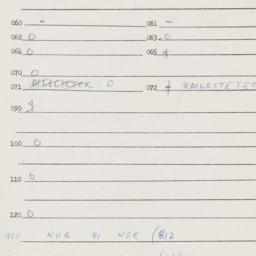 060 - 061 -
062 0 063 0
064 0 065
070 0
071 DILECTETER 0 072 @DILECTETER
090
100 0
110 0
120 0
900 NUR 91 NOR (812